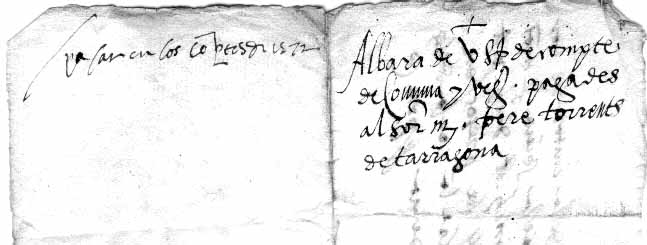 pasar en los Coptes di 1572
Albara de v ss de compte
de Comuna y veg. pagades
al sor m. pere torrents
de tarragona